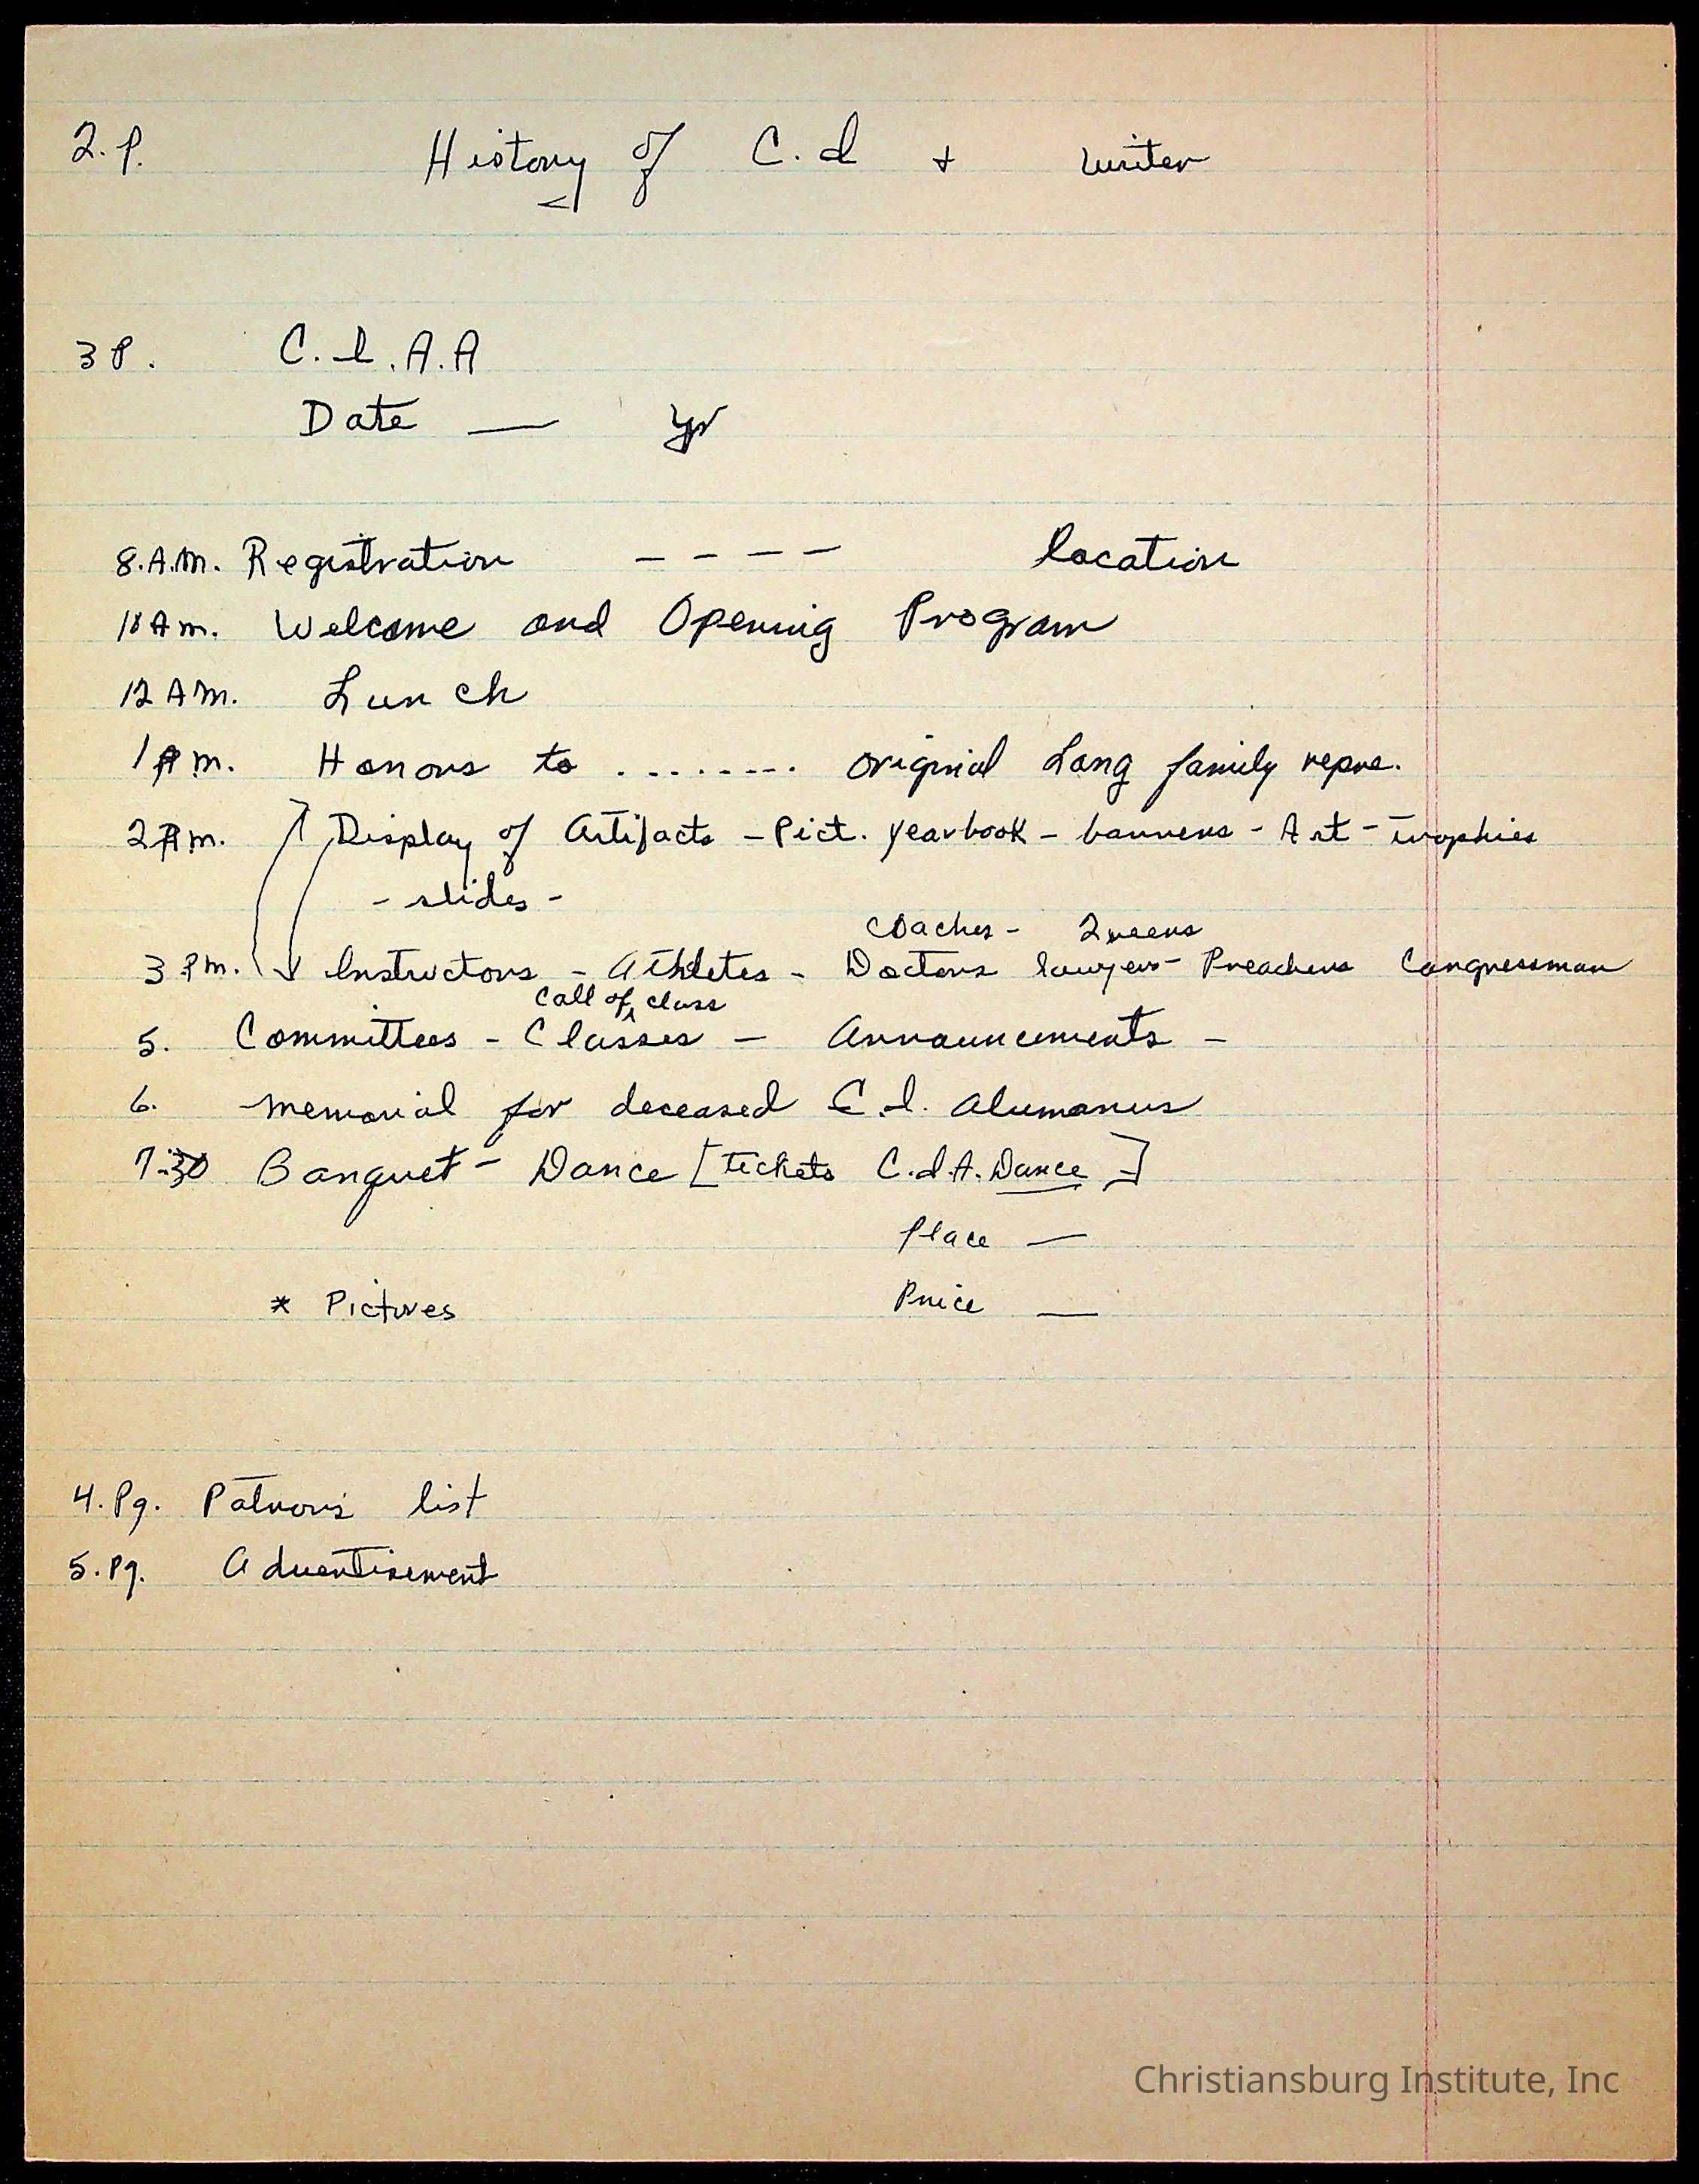 2. P. History of C. I + writer
3 P. C. I. A. A
Date — yr
8. A.M. Registration - - - - location
10 Am. Welcome and Opening Program
12 AM. Lunch
1 Pm. Honors to ........ original Long family repre.
2 Pm. Display of Artifacts - Pict. yearbook - banners - Art - trophies
- slides -
coaches - Queens
3 Pm. Instructors - Athletes - Doctors lawyers - Preachers Congressman
Call of class
5. Committees - Classes - Announcements -
6. Memorial for deceased C. I. Alumanus
7:30 Banquet - Dance [tickets C.I.A. Dance]
Place —
* Pictures Price —
4. Pg. Patrons list
5. Pg. Advertisement
Christiansburg Institute, Inc